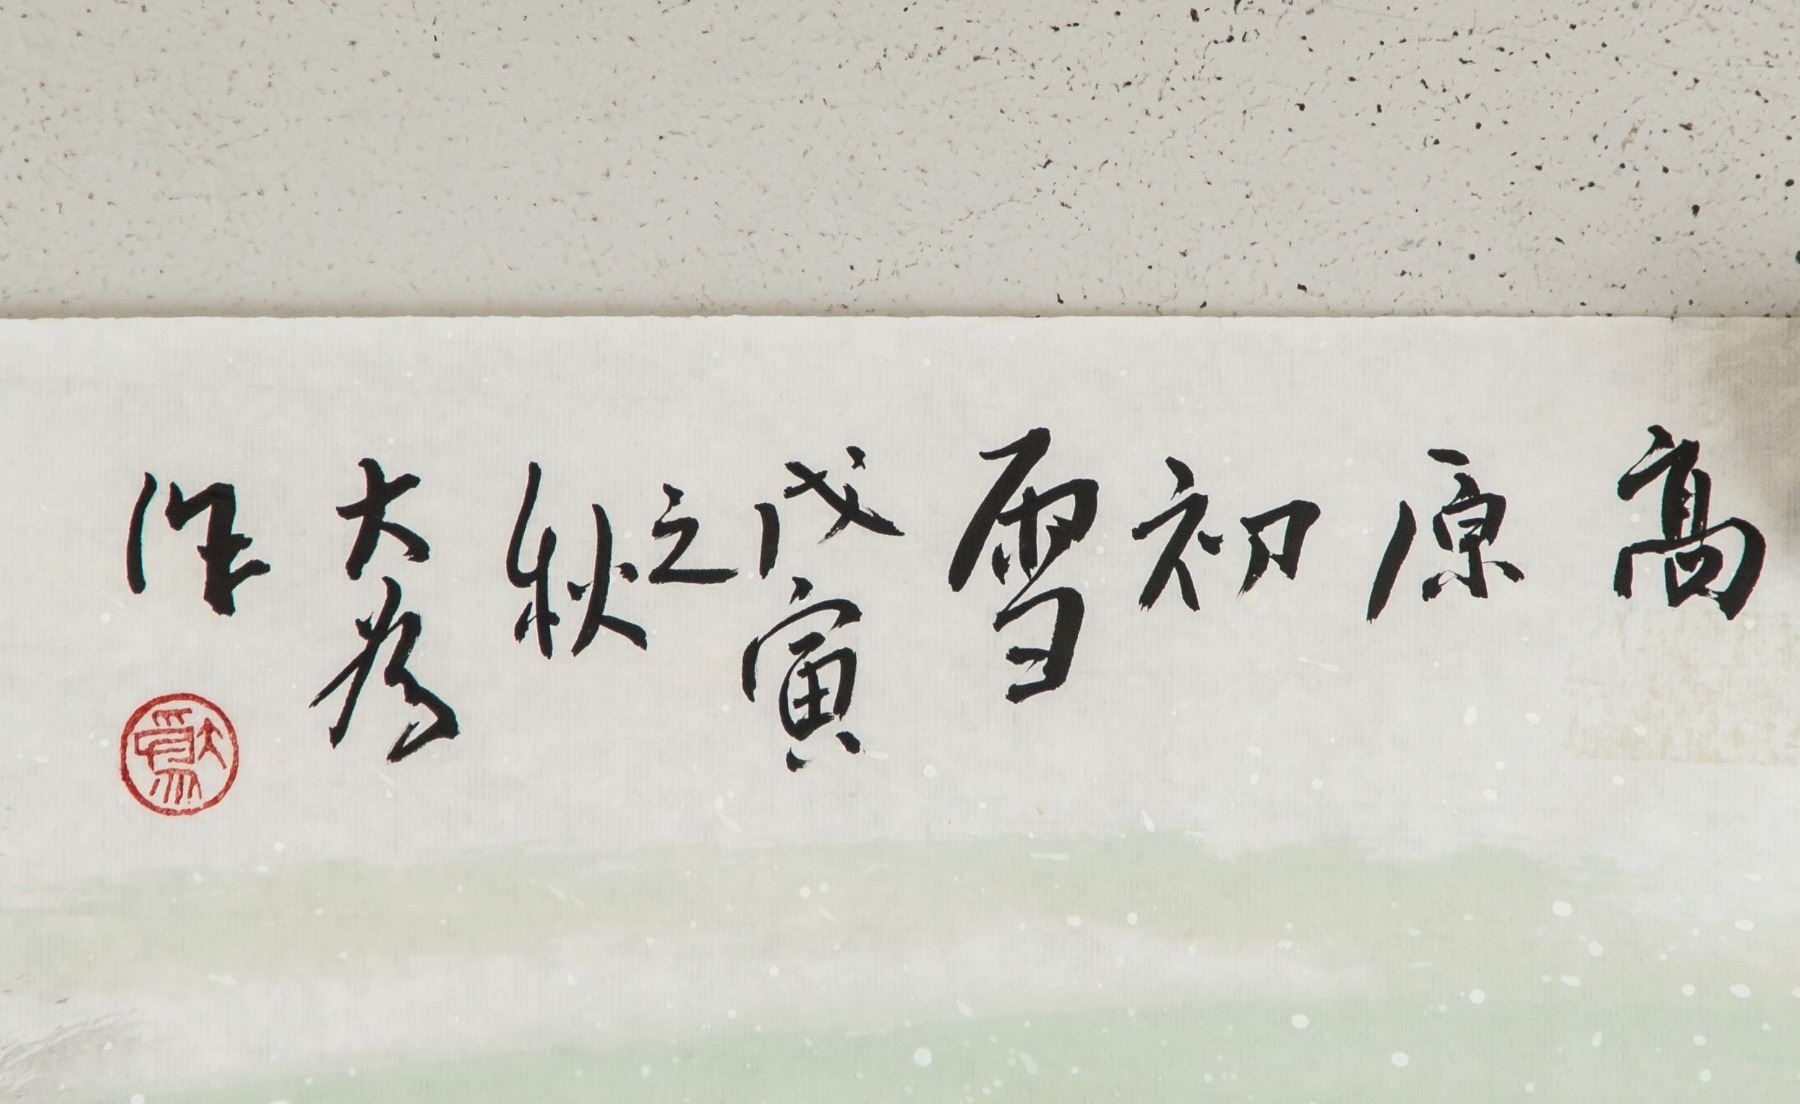 高原初雪
戊寅之秋
大为作